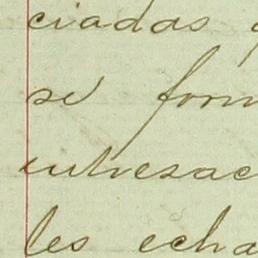 ciadas
se form
entresac
les echa